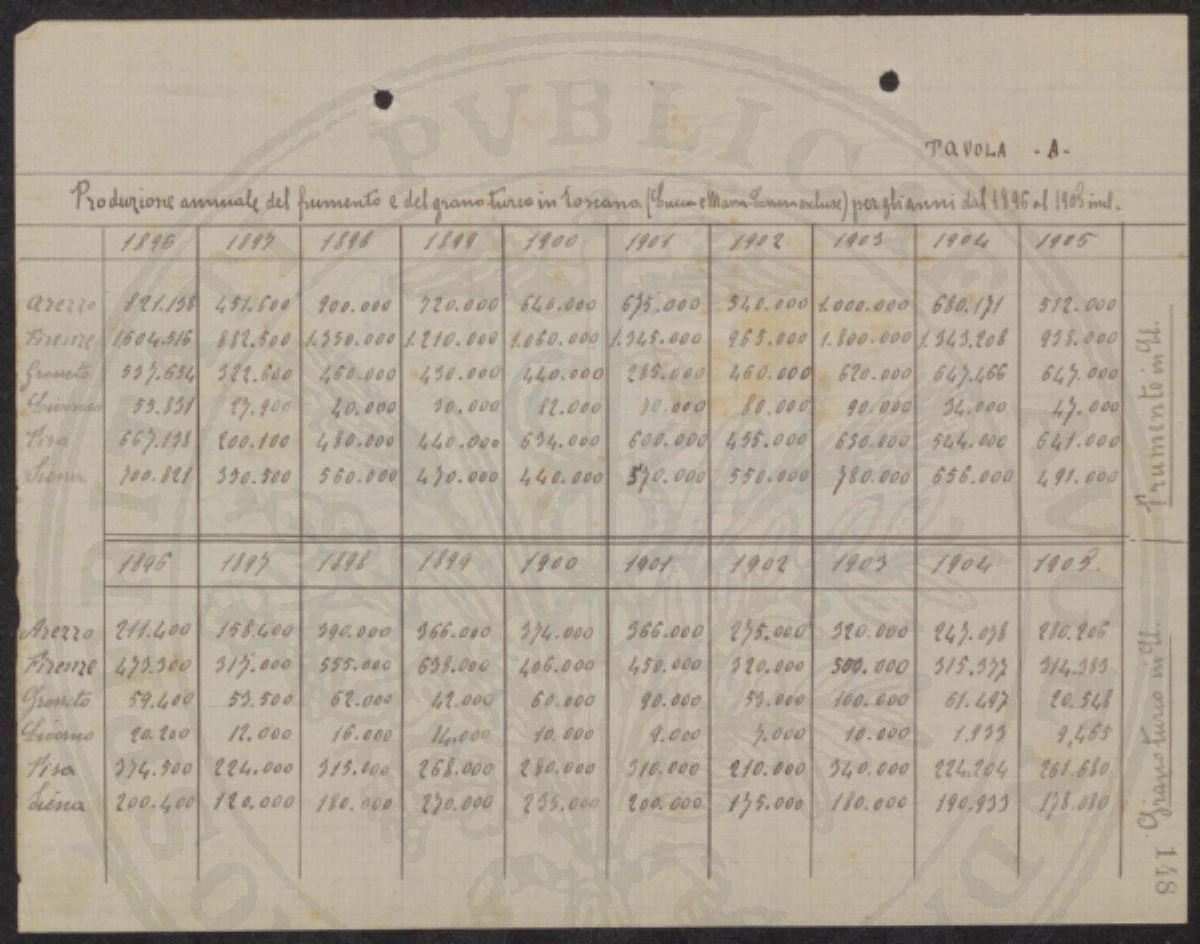 PVBLICAE
TAVOLA - A -
Produzione annuale del frumento e del grano turco in Toscana (Lucca e Massa-Carrara escluse) per gli anni dal 1896 al 1905 incl.
1896 1897 1898 1899 1900 1901 1902 1903 1904 1905
Arezzo 821.138 451.600 900.000 720.000 640.000 675.000 540.000 1.000.000 680.171 512.000
Firenze 1604.516 882.500 1.350.000 1.210.000 1.060.000 1.345.000 965.000 1.800.000 1.343.208 938.000
Grosseto 537.634 322.600 460.000 430.000 440.000 285.000 460.000 620.000 647.466 647.000
Livorno 53.831 27.900 40.000 30.000 82.000 70.000 80.000 90.000 34.000 47.000
Pisa 667.138 200.100 480.000 440.000 634.000 600.000 455.000 650.000 544.000 641.000
Siena 700.821 330.500 560.000 470.000 440.000 570.000 550.000 780.000 656.000 491.000
Frumento in Ql.
1896 1897 1898 1899 1900 1901 1902 1903 1904 1905.
Arezzo 211.400 158.400 390.000 366.000 374.000 366.000 275.000 320.000 247.078 280.206
Firenze 473.300 317.000 555.000 638.000 406.000 450.000 320.000 500.000 315.377 314.383
Grosseto 59.400 53.500 62.000 42.000 60.000 90.000 53.000 100.000 61.497 20.548
Livorno 20.200 12.000 16.000 14.000 10.000 9.000 7.000 10.000 1.933 9,465
Pisa 374.500 224.000 315.000 268.000 280.000 310.000 210.000 340.000 224.204 261.680
Siena 200.400 120.000 180.000 270.000 235.000 200.000 175.000 180.000 190.933 178.080
Grano turco in Ql.
148